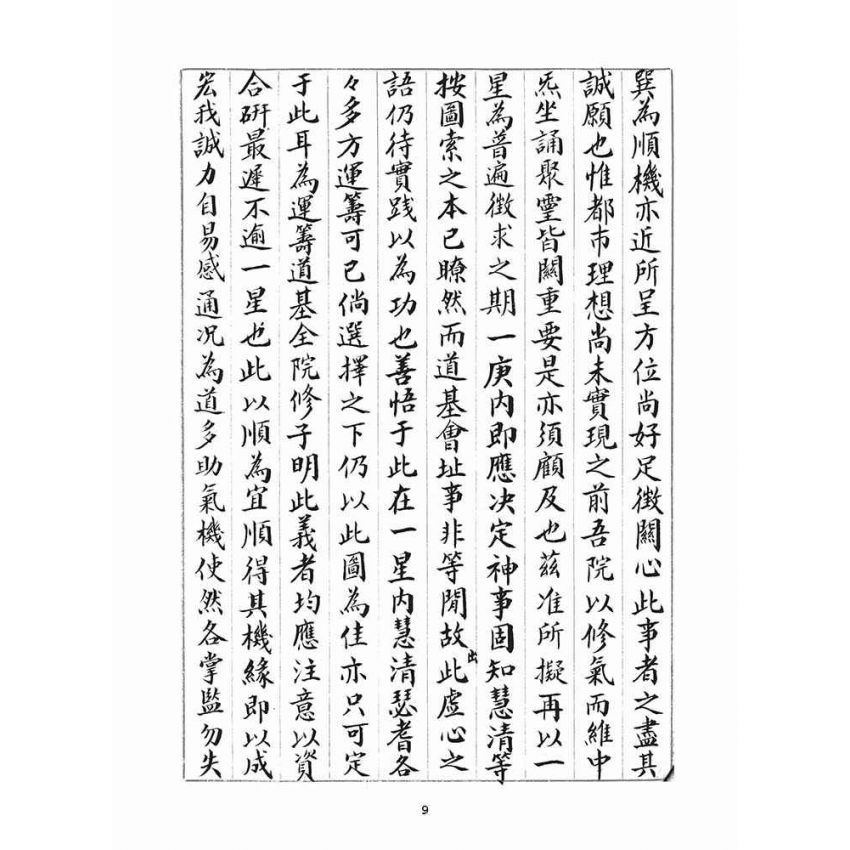 巽為順機亦近所呈方位尚好足徵關心此事者之盡其
誠願也惟都市理想尚未實現之前吾院以修氣而維中
炁坐誦聚靈皆關重要是亦須顧及也茲准所擬再以一
星為普遍徵求之期一庚內即應決定神事固知慧清等
按圖索之本已瞭然而道基會址事非等閒故出此虛心之
語仍待實踐以為功也善悟于此在一星內慧清瑟耆各
々多方運籌可已倘選擇之下仍以此圖為佳亦只可定
于此耳為運籌道基全院修子明此義者均應注意以資
合研最遲不逾一星也此以順為宜順得其機緣即以成
宏我誠力自易感通况為道多助氣機使然各掌監勿失
9